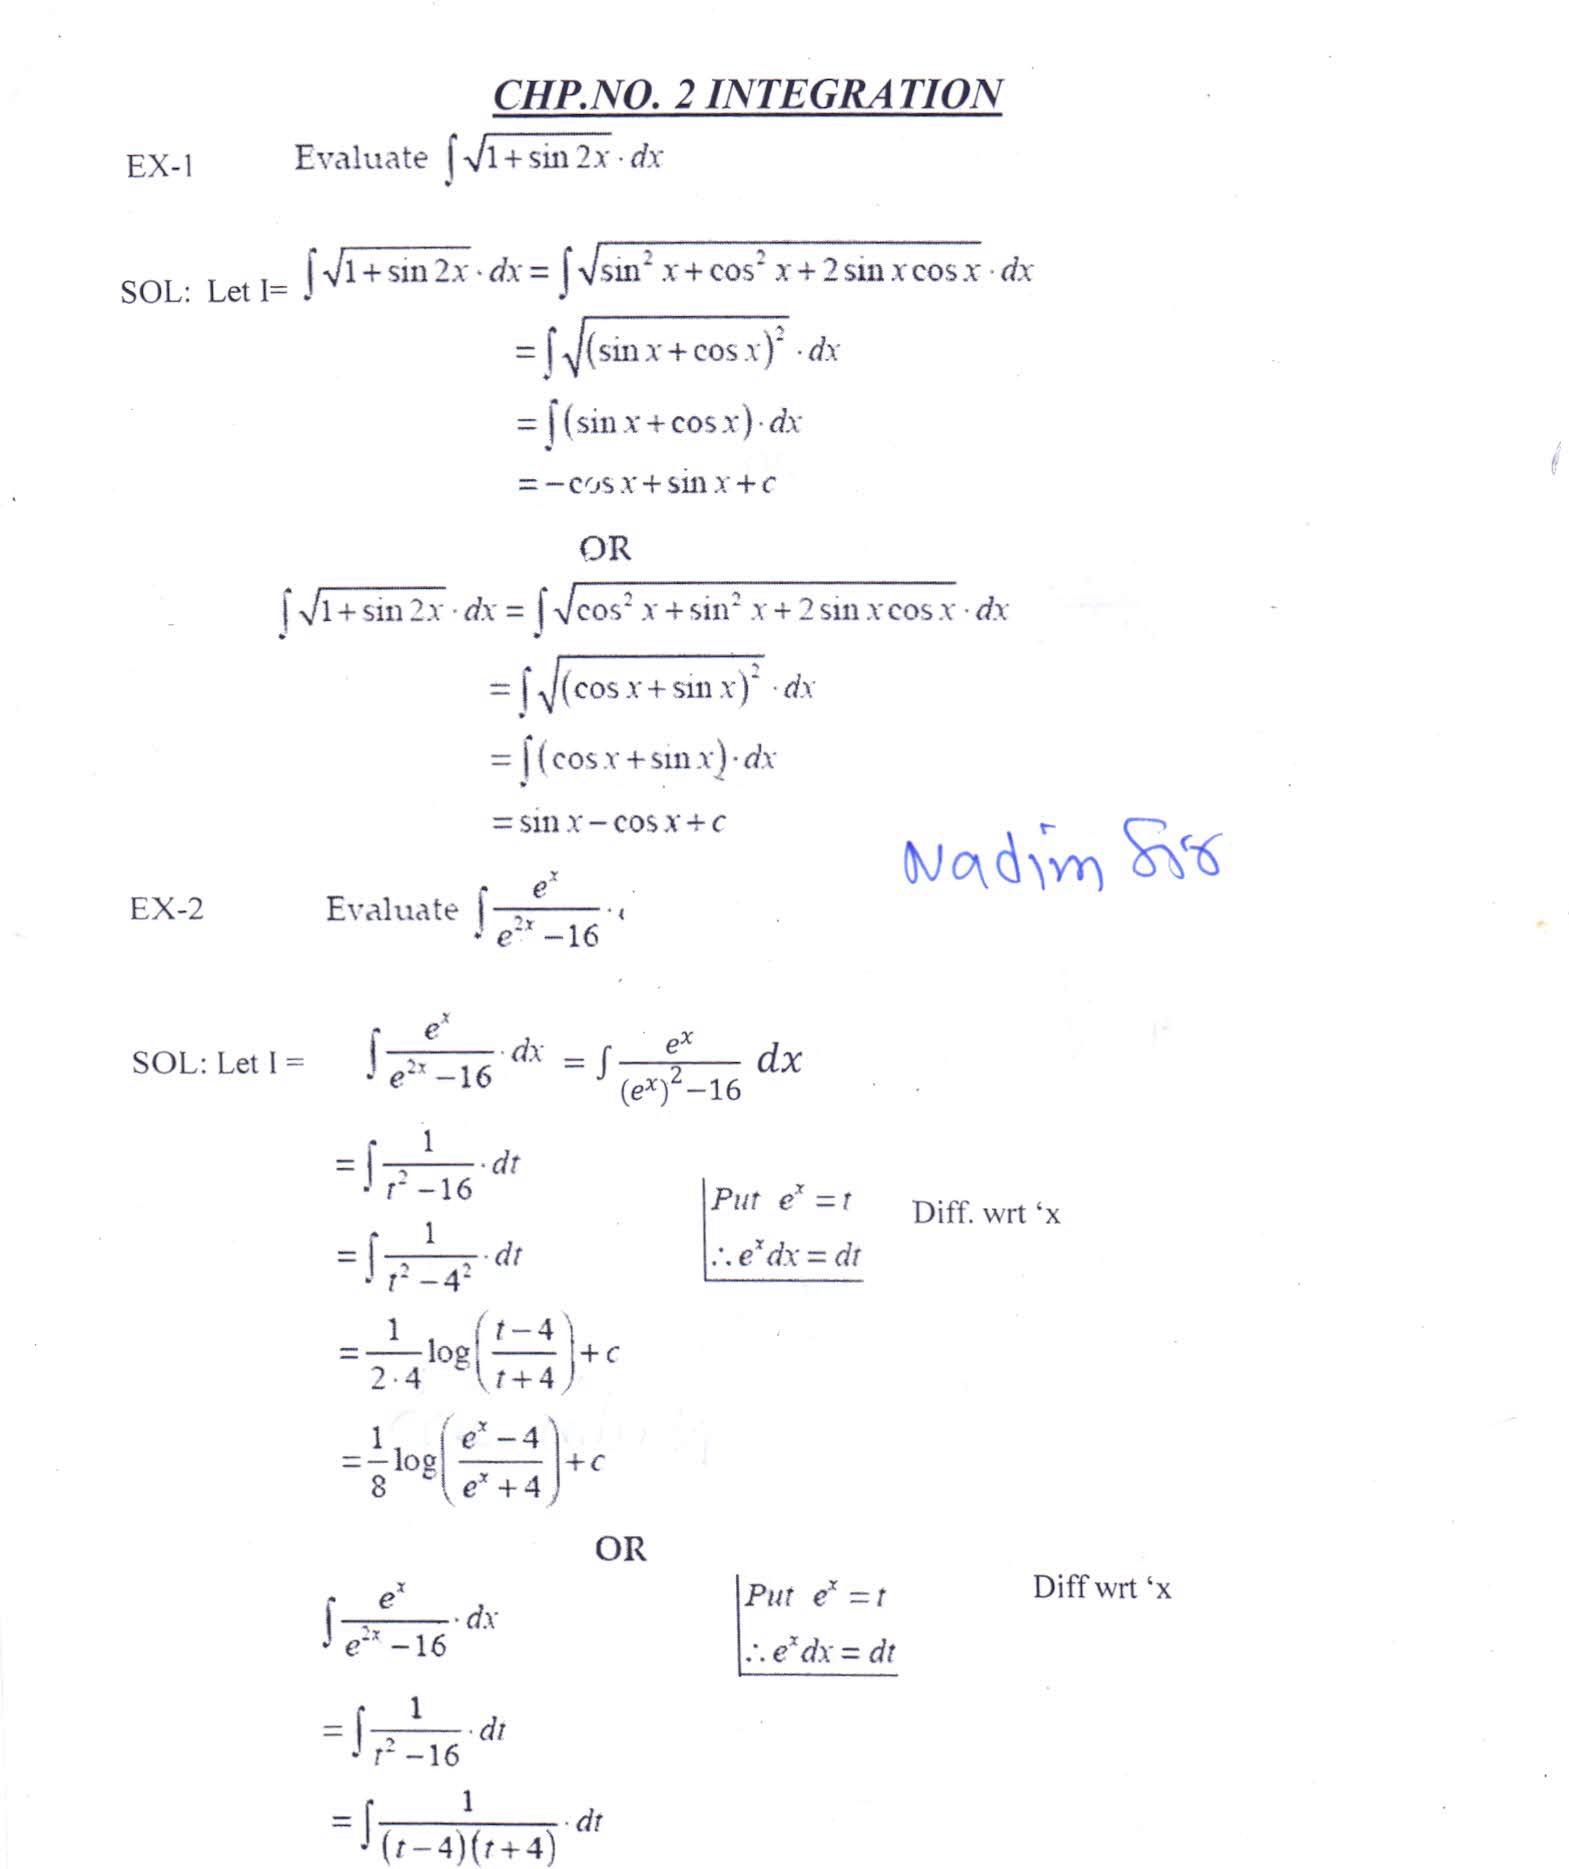 CHP.NO. 2 INTEGRATION
EX-1 Evaluate ∫√(1+sin 2x)·dx
SOL: Let I= ∫√(1+sin 2x)·dx = ∫√(sin² x+cos² x+2 sin x cos x)·dx
= ∫√((sin x+cos x)²)·dx
= ∫(sin x+cos x)·dx
= −cos x+sin x+c
OR
∫√(1+sin 2x)·dx = ∫√(cos² x+sin² x+2 sin x cos x)·dx
= ∫√((cos x+sin x)²)·dx
= ∫(cos x+sin x)·dx
= sin x−cos x+c
Nadim Sir
EX-2 Evaluate ∫ e^x/(e^(2x) −16)·
SOL: Let I = ∫ e^x/(e^(2x) −16)·dx = ∫ e^x/((e^x)²−16) dx
= ∫ 1/(t² −16)·dt
Put e^x = t Diff. wrt ‘x
= ∫ 1/(t² −4²)·dt
∴ e^x dx = dt
= 1/(2·4) log((t−4)/(t+4))+c
= 1/8 log((e^x −4)/(e^x +4))+c
OR
∫ e^x/(e^(2x) −16)·dx
Put e^x = t Diff wrt ‘x
∴ e^x dx = dt
= ∫ 1/(t² −16)·dt
= ∫ 1/((t−4)(t+4))·dt